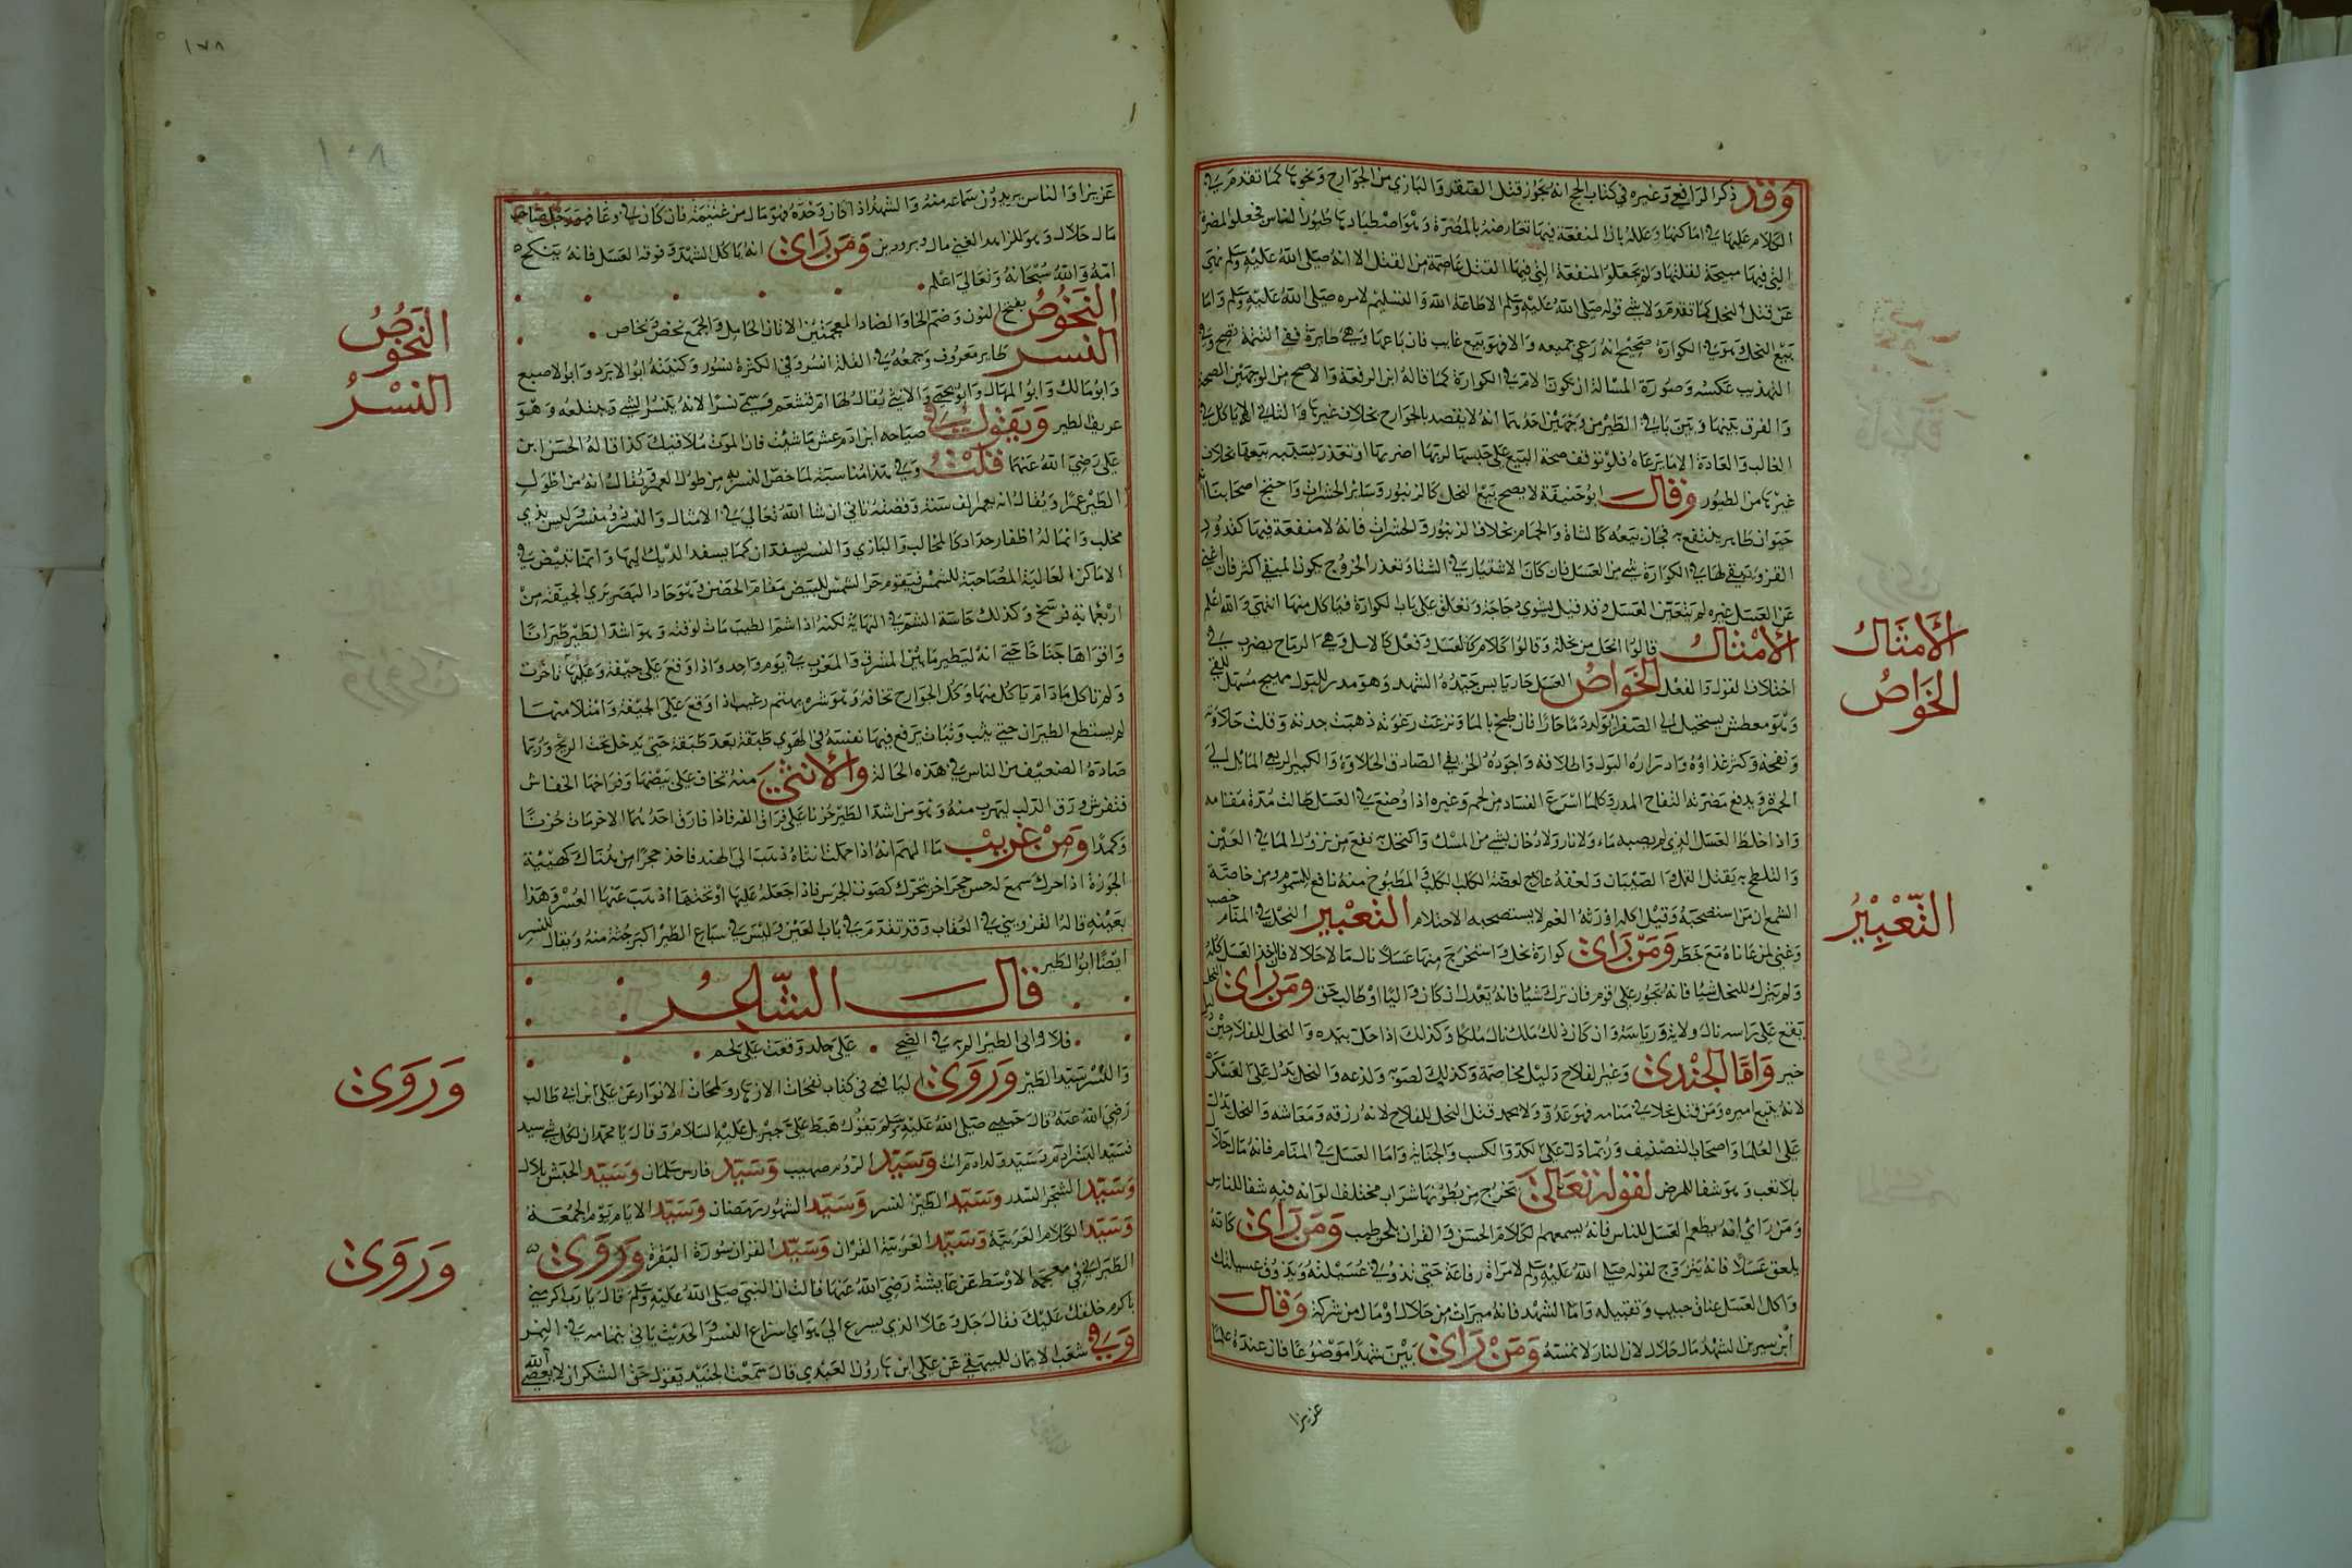 وقد ذكر الرافعي وغيره في كتاب الحج انه يجوز قتل الفهد والبازي من الجوارح ونحوها كما تقدم في
الكلام عليها في اماكنها وعلله بان المنفعة فيها تعارضه بالمضرة وهو اصطيادها طيور الناس فجعلوا المضرة
التي فيها مبيحة لقتلها ولم يجعلوا المنفعة التي فيها القتل عاصمة من القتل الا انه صلى الله عليه وسلم نهى
عن قتل النحل كما تقدم ولا شي قوله صلى الله عليه وسلم الا طاعة الله والتسليم لامره صلى الله عليه وسلم واما
بيع النحل وهو في الكوارة صحيح انه رءي جميعه والا فهو بيع غايب فان باعها وهي طايرة ففي التتمة يصح وفي
التهذيب عكسه وصورة المسالة ان تكون الام في الكوارة كما قاله ابن الرفعة والاصح من الوجهين الصحة
والفرق بينها وبين باقي الطير من وجهين احدهما انه لا يقصد بالجوارح بخلاف غيرها والثاني انها لا تاكل في
الغالب والعادة الا ما ترعاه فلو توقف صحة البيع على حبسها لربما اضر بها او تعذر بسببه بيعها بخلاف
غيرها من الطيور وقال ابو حنيفة لا يصح بيع النحل كالزنبور وساير الحشرات واحتج اصحابنا بانه
حيوان طاير ينتفع به فجاز بيعه كالشاة والحمام بخلاف الزنبور والحشرات فانه لا منفعة فيها كدود
القز ويبقى لها في الكوارة شي من العسل فان كان الاشتيار في الشتا وتعذر الخروج يكون المبقى اكثر فان اغنى
عن العسل غيره لم يتعين العسل وقد قيل يشوي دجاجة ويعلق على باب الكوارة فياكل منها انتهى والله اعلم
الامثال قالوا انحل من نحلة وقالوا كلام كالعسل وفعل كالاسل وهي الرماح يضرب في
اختلاف القول والفعل الخواص العسل حار يابس جيده الشهد وهو مدر للبول مهيج مسهل للقي
وهو معطش يستحيل الى الصفرا يولد دما حارا فان طبخ بالما ونزعت رغوته ذهبت حدته وقلت حلاوته
ونفعه وكثر غذاوه وادراره البول واطلاقه واجوده الخريفي الصادق الحلاوة والكثير الربيعي المائل الى
الحمرة ويدفع مضرته التفاح المز وكلما اسرع الفساد من لحم وغيره اذا وضع في العسل طالت مدة مقامه
واذا خلط العسل الذي لم يصبه ماء ولا نار ولا دخان بشي من المسك واكتحل به نفع من نزول الما في العين
والتلطخ به يقتل القمل والصيبان ولعقه علاج لعضة الكلب الكلب والمطبوخ منه نافع للسموم ومن خاصة
الشمع ان من استصحبه وقيل اكله اورثه الغم لا يستصحبه الاحتلام التعبير النحل في المنام خصب
وغنى لمن عاناه مع خطر ومن راى كوارة نحل واستخرج منها عسلا نال مالا حلالا فان اخذ العسل كله
ولم يترك للنحل شيا فانه يجور على قوم فان ترك شيا فانه يعدل ان كان واليا او طالب حق ومن راى النحل
يقع على راسه نال ولاية ورياسة وان كان ذلك ملك نال ملكا وكذلك اذا حل بيده والنحل للفلاحين
خير واما الجندي وغير الفلاح دليل مخاصمة وكذلك لصوته ولدغه والنحل يدل على العسكر
لانه يتبع اميره ومن قتل نحلا في منامه فهو عدو ولا يحمد قتل النحل للفلاح لانه رزقه ومعاشه والنحل يدل
على العلما واصحاب التصنيف وربما دل على الكد والكسب والجباية واما العسل في المنام فانه مال حلال
بلا تعب وهو شفا للمرض لقوله تعالى يخرج من بطونها شراب مختلف الوانه فيه شفا للناس
ومن راى انه يطعم العسل للناس فانه يسمعهم لكلام الحسن والقران بلحن طيب ومن راى كانه
يلعق عسلا فانه يتزوج لقوله صلى الله عليه وسلم لامراة رفاعة حتى تذوقي عسيلته ويذوق عسيلتك
واكل العسل عناق حبيب وتقبيله واما الشهد فانه ميراث من حلال او مال من شركة وقال
ابن سيرين الشهد مال حلال لان النار لا تمسه ومن راى بين يديه شهدا موضوعا فان عنده علما
عزيزا
الامثال
الخواص
التعبير
١٧٨
١٠٨
عزيزا والناس يريدون سماعه منه والشهد اذا كان وحده فهو مال من غنيمة فان كان في وعا فهو رجل صاحب
مال حلال وهو للزاهد الغني مال وبر ودين ومن راى انه ياكل الشهد وفوقه العسل فانه ينكح
امه والله سبحانه وتعالى اعلم
النحوص بفتح النون وضم الحا والضاد المعجمتين الاتان الحامل والجمع نحص ونحاص
النسر طاير معروف وجمعه في القلة انسر وفي الكثرة نسور وكنيته ابو الابرد وابو الاصبع
وابو مالك وابو المهال وابو يحيى والانثى يقال لها ام قشعم وسمي نسرا لانه ينسر الشي ويبتلعه وهو
عريف الطير ويقول في صياحه ابن ادم عش ما شيت فان الموت ملاقيك كذا قاله الحسن ابن
علي رضي الله عنهما قلت وفي هذا مناسبة لما خص النسر به من طول العمر يقال انه من اطول
الطير عمرا ويقال انه يعمر الف سنة وقصته تاتي ان شا الله تعالى في الامثال والنسر ذو منسر وليس بذي
مخلب وانما له اظفار حداد كالمخالب والبازي والنسر يسفدان كما يسفد الديك اليها وانها تبيض في
الاماكن العالية المضاحية للشمس فيقوم حر الشمس للبيض مقام الحضن وهو حاد البصر يرى الجيفة من
اربعماية فرسخ وكذلك حاسة الشم في النهاية لكنه اذا شم الطيب مات لوقته وهو اشد الطير طيرانا
واقواها جناحا حتى انه ليطير ما بين المشرق والمغرب في يوم واحد واذا وقع على جيفة وعليها تاخرت
ولم تاكل ما دام ياكل منها وكل الجوارح تخافه وهو شره نهم رغيب اذا وقع على الجيفة وامتلا منها
لم يستطع الطيران حتى يثب وثبات يرفع فيها نفسه في الهوى طبقة بعد طبقة حتى يدخل تحت الريح وربما
صاده الضعيف من الناس في هذه الحالة والانثى منه تخاف على بيضها وفراخها الخفاش
فتفرش ورق الدلب ليهرب منه وهو من اشد الطير حزنا على فراق الفه فاذا فارق احدهما الاخر مات حزنا
وكمدا ومن غريب ما الهم انه اذا حملت انثاه ذهب الى الهند فاخذ حجرا من هناك كهيئة
الجوزة اذا حرك سمع لحس حجر اخر يتحرك كصوت الجرس فاذا جعله عليها او تحتها اذهبت عنها العسر وهذا
بعينه قاله القزويني في العقاب وقد تقدم في باب العين وليس في سباع الطير اكبر جثة منه ويقال للنسر
ايضا ابو الطير
قال الشاعر
فلا وابي الطير المربة في الضحى على خلد وقعت على لحم
والنسر سيد الطير وروى اليافعي في كتاب نفحات الازهار ولمحات الانوار عن علي ابن ابي طالب
رضي الله عنه قال حبيبي صلى الله عليه وسلم يقول هبط علي جبريل عليه السلام وقال يا محمد ان لكل شي سيد
فسيد البشر ادم وسيد ولد ادم انت وسيد الروم صهيب وسيد فارس سلمان وسيد الحبش بلال
وسيد الشجر السدر وسيد الطير النسر وسيد الشهور رمضان وسيد الايام يوم الجمعة
وسيد الكلام العربية وسيد العربية القران وسيد القران سورة البقرة وروى
الطبراني في معجمه الاوسط عن عايشة رضي الله عنها قالت ان النبي صلى الله عليه وسلم قال يا رب اكرمني
باكرم خلقك عليك فقال جل وعلا الذي يسرع الى هواي اسراع النسر والحديث ياتي بتمامه في النمر
وفي شعب الايمان للبيهقي عن علي ابن هارون العبدي قال سمعت الجنيد يقول حق الشكر ان لا يعصى الله
النحوص
النسر
وروى
وروى